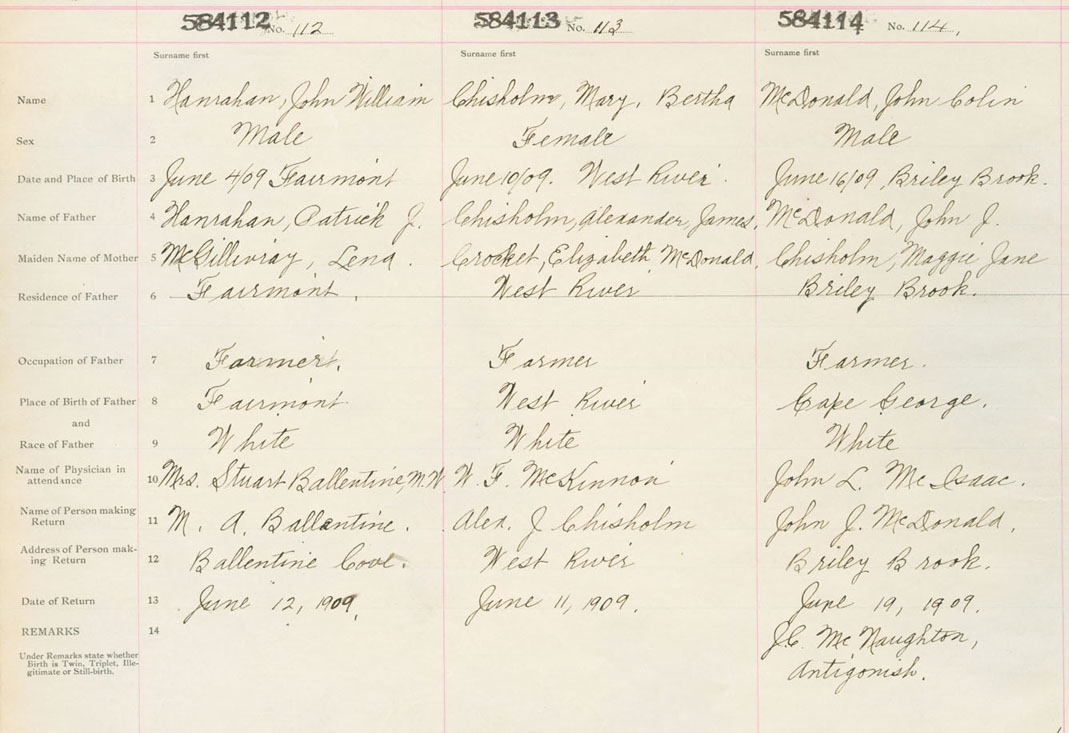 584112 No. 112 584113 No. 113 584114 No. 114,
Surname first Surname first Surname first
Name 1 Hanrahan, John William Chisholm, Mary, Bertha McDonald, John Colin
Sex 2 Male Female Male
Date and Place of Birth 3 June 4/09 Fairmont June 10/09. West River. June 16/09, Briley Brook.
Name of Father 4 Hanrahan, Patrick J. Chisholm, Alexander, James. McDonald, John J.
Maiden Name of Mother 5 McGillivray, Lena. Crocket, Elizabeth McDonald. Chisholm, Maggie Jane
Residence of Father 6 Fairmont. West River Briley Brook.
Occupation of Father 7 Farmer. Farmer Farmer.
Place of Birth of Father 8 Fairmont West River Cape George.
and
Race of Father 9 White White White
Name of Physician in
attendance 10 Mrs. Stuart Ballentine, M.W W. F. McKinnon John L. McIsaac.
Name of Person making
Return 11 M. A. Ballantine. Alex. J Chisholm John J. McDonald.
Address of Person mak-
ing Return 12 Ballentine Cove. West River Briley Brook.
Date of Return 13 June 12, 1909. June 11, 1909. June 19, 1909.
REMARKS 14 J.C. McNaughton,
Under Remarks state whether
Birth is Twin, Triplet, Ille-
gitimate or Still-birth.
Antigonish.